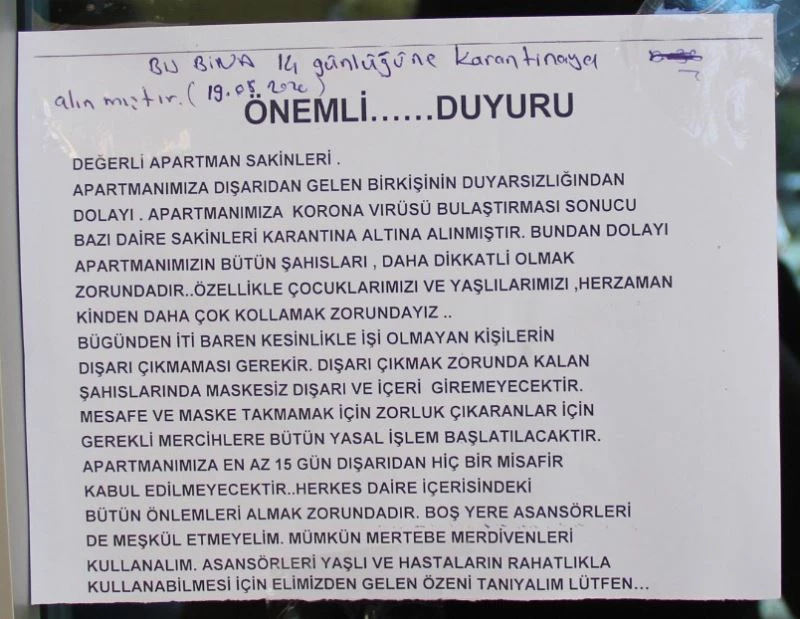 BU BİNA 14 günlüğüne karantinaya
alınmıştır. (19.05.2020)
ÖNEMLİ......DUYURU
DEĞERLİ APARTMAN SAKİNLERİ .
APARTMANIMIZA DIŞARIDAN GELEN BİRKİŞİNİN DUYARSIZLIĞINDAN
DOLAYI . APARTMANIMIZA KORONA VIRÜSÜ BULAŞTIRMASI SONUCU
BAZI DAİRE SAKINLERİ KARANTINA ALTINA ALINMIŞTIR. BUNDAN DOLAYI
APARTMANIMIZIN BÜTÜN ŞAHISLARI , DAHA DİKKATLİ OLMAK
ZORUNDADIR..ÖZELLİKLE ÇOCUKLARIMIZI VE YAŞLILARIMIZI ,HERZAMAN
KİNDEN DAHA ÇOK KOLLAMAK ZORUNDAYIZ ..
BÜGÜNDEN İTİ BAREN KESİNLİKLE İŞİ OLMAYAN KİŞİLERİN
DIŞARI ÇIKMAMASI GEREKİR. DIŞARI ÇIKMAK ZORUNDA KALAN
ŞAHISLARINDA MASKESİZ DIŞARI VE İÇERİ GİREMEYECEKTİR.
MESAFE VE MASKE TAKMAMAK İÇİN ZORLUK ÇIKARANLAR İÇİN
GEREKLİ MERCİHLERE BÜTÜN YASAL İŞLEM BAŞLATILACAKTIR.
APARTMANIMIZA EN AZ 15 GÜN DIŞARIDAN HİÇ BİR MİSAFİR
KABUL EDİLMEYECEKTİR..HERKES DAİRE İÇERİSİNDEKİ
BÜTÜN ÖNLEMLERİ ALMAK ZORUNDADIR. BOŞ YERE ASANSÖRLERİ
DE MEŞKÜL ETMEYELİM. MÜMKÜN MERTEBE MERDİVENLERİ
KULLANALIM. ASANSÖRLERİ YAŞLI VE HASTALARIN RAHATLIKLA
KULLANABİLMESİ İÇİN ELİMİZDEN GELEN ÖZENİ TANIYALIM LÜTFEN...